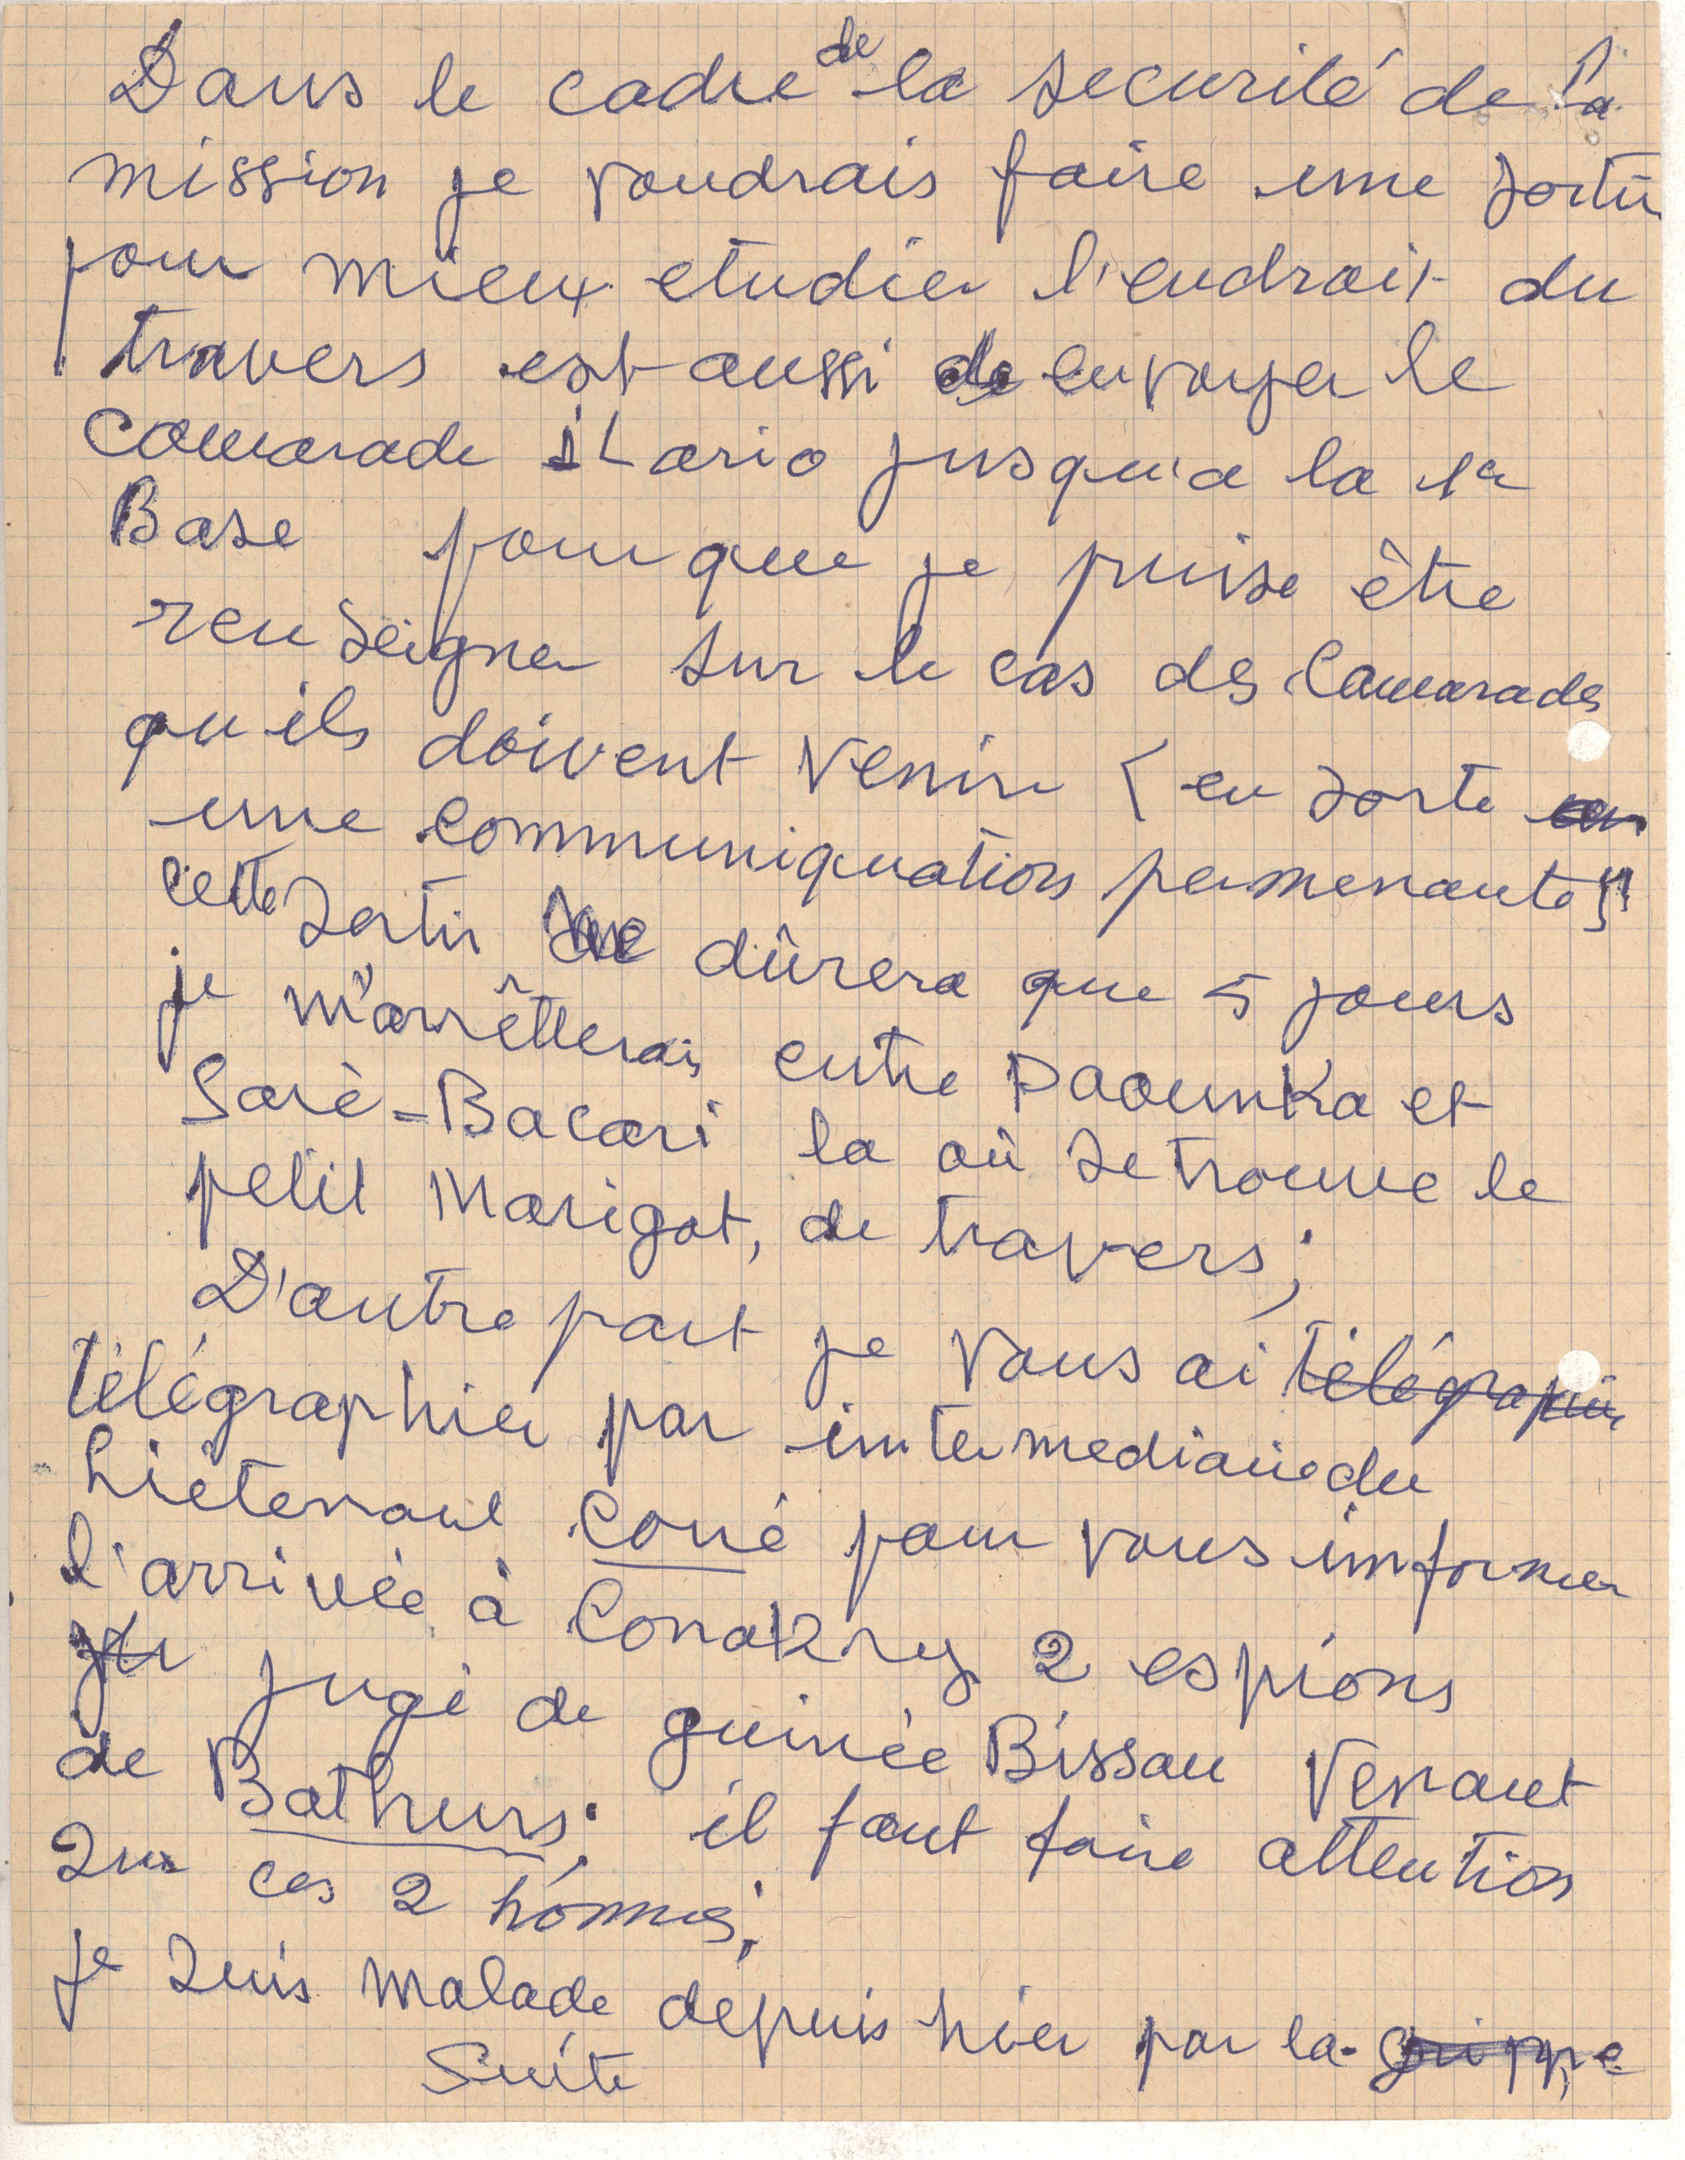 Dans le cadre de la securité de la
mission je voudrais faire une sortie
pour mieux etudier l'endroit du
travers est aussi de envoyer le
Camarade iLario jusqu'a la 1er
Base pour que je puise être
renseigner sur le cas des Camarades
qu'ils doivent Venir (en sorte
une communiquation permenante)"
cette sortir ne dûrera que 5 jours
je m'arrêtterais entre Paounka et
Sarè-Bacari la où se trouve le
petit Marigot, de travers;
D'autre part je vous ai télégraphier
télégraphier par intermediaire du
Liètenant Coné pour vous informer
l'arrivée à Conakry 2 espions
jugé de guinée Bissau Venant
de Bathurs; il faut faire attention
sur ces 2 hommes;
je suis malade depuis hier par la grippe
Suite